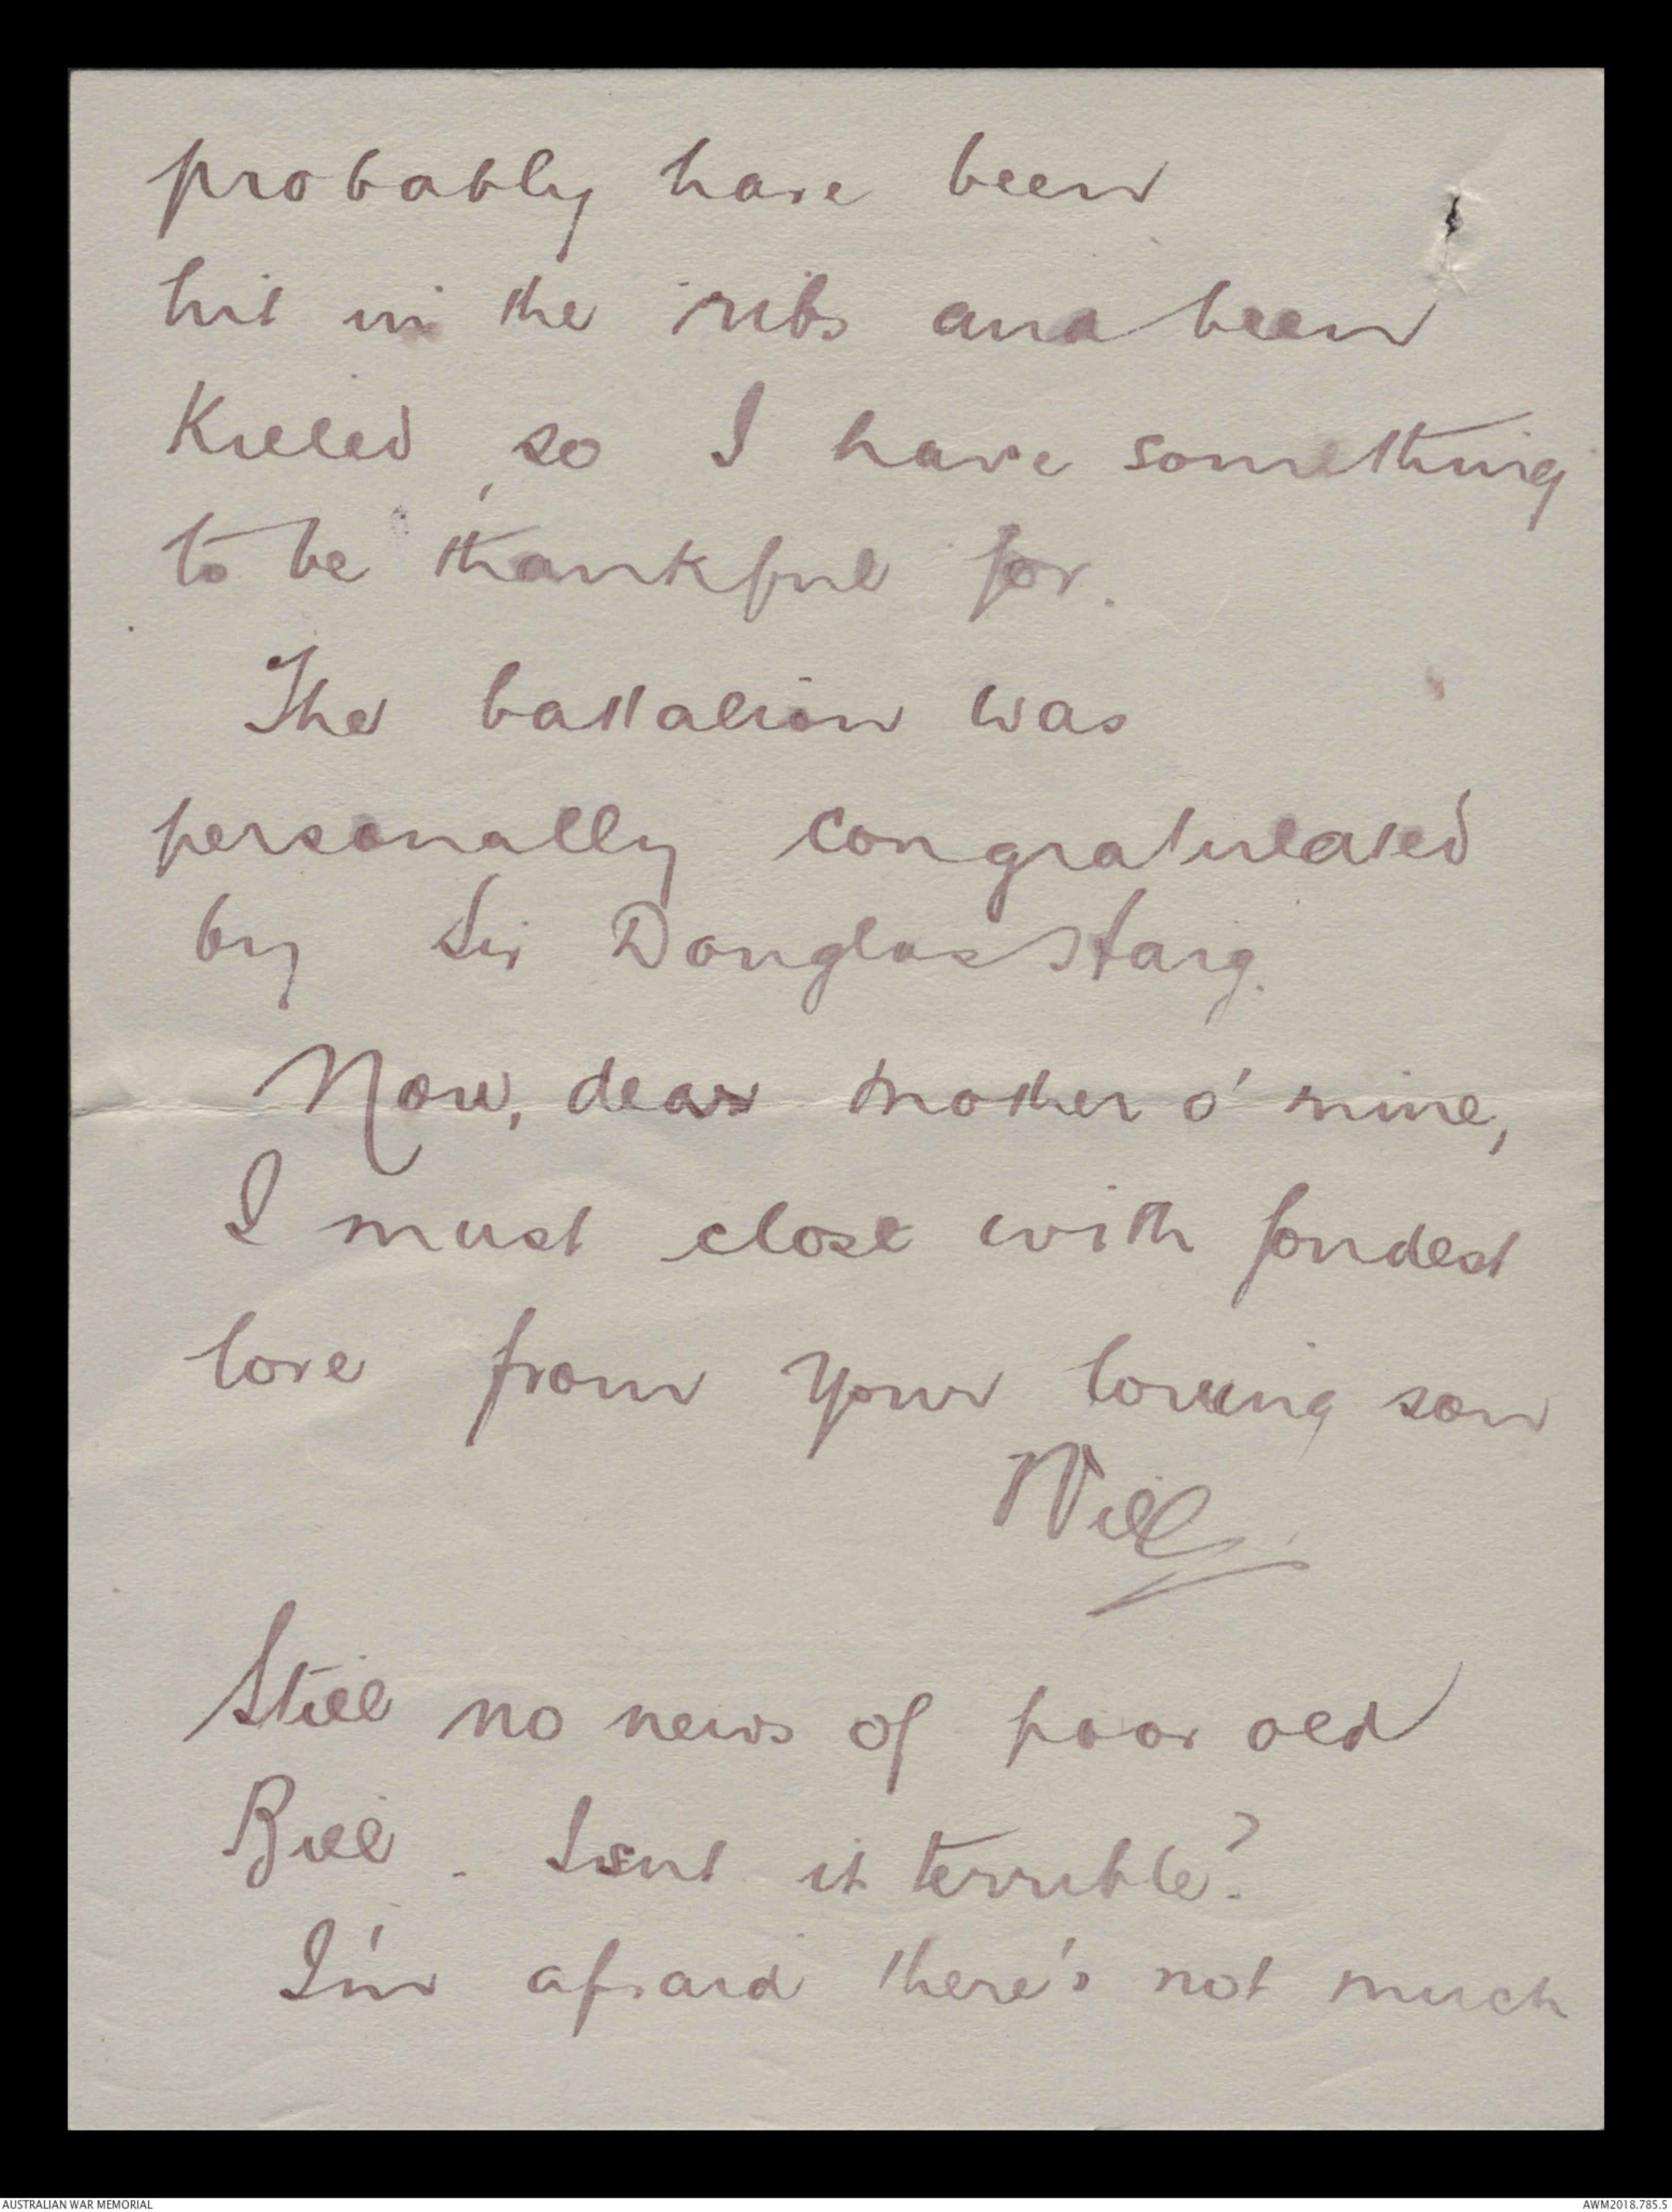 probably have been
hit in the ribs and been
Killed, so I have something
to be thankful for.
The battalion was
personally congratulated
by Sir Douglas Haig.
Now, dear mother o' mine,
I must close with fondest
love from your loving son
Will
Still no news of poor old
Bill. Isnt it terrible?
I'm afraid there's not much
AUSTRALIAN WAR MEMORIAL
AWM2018.785.5